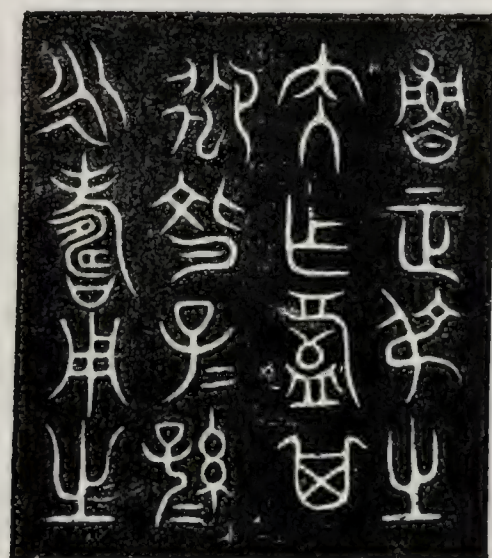 魯正叔之
穴乍鑄其
御般子=孫=
永壽用之